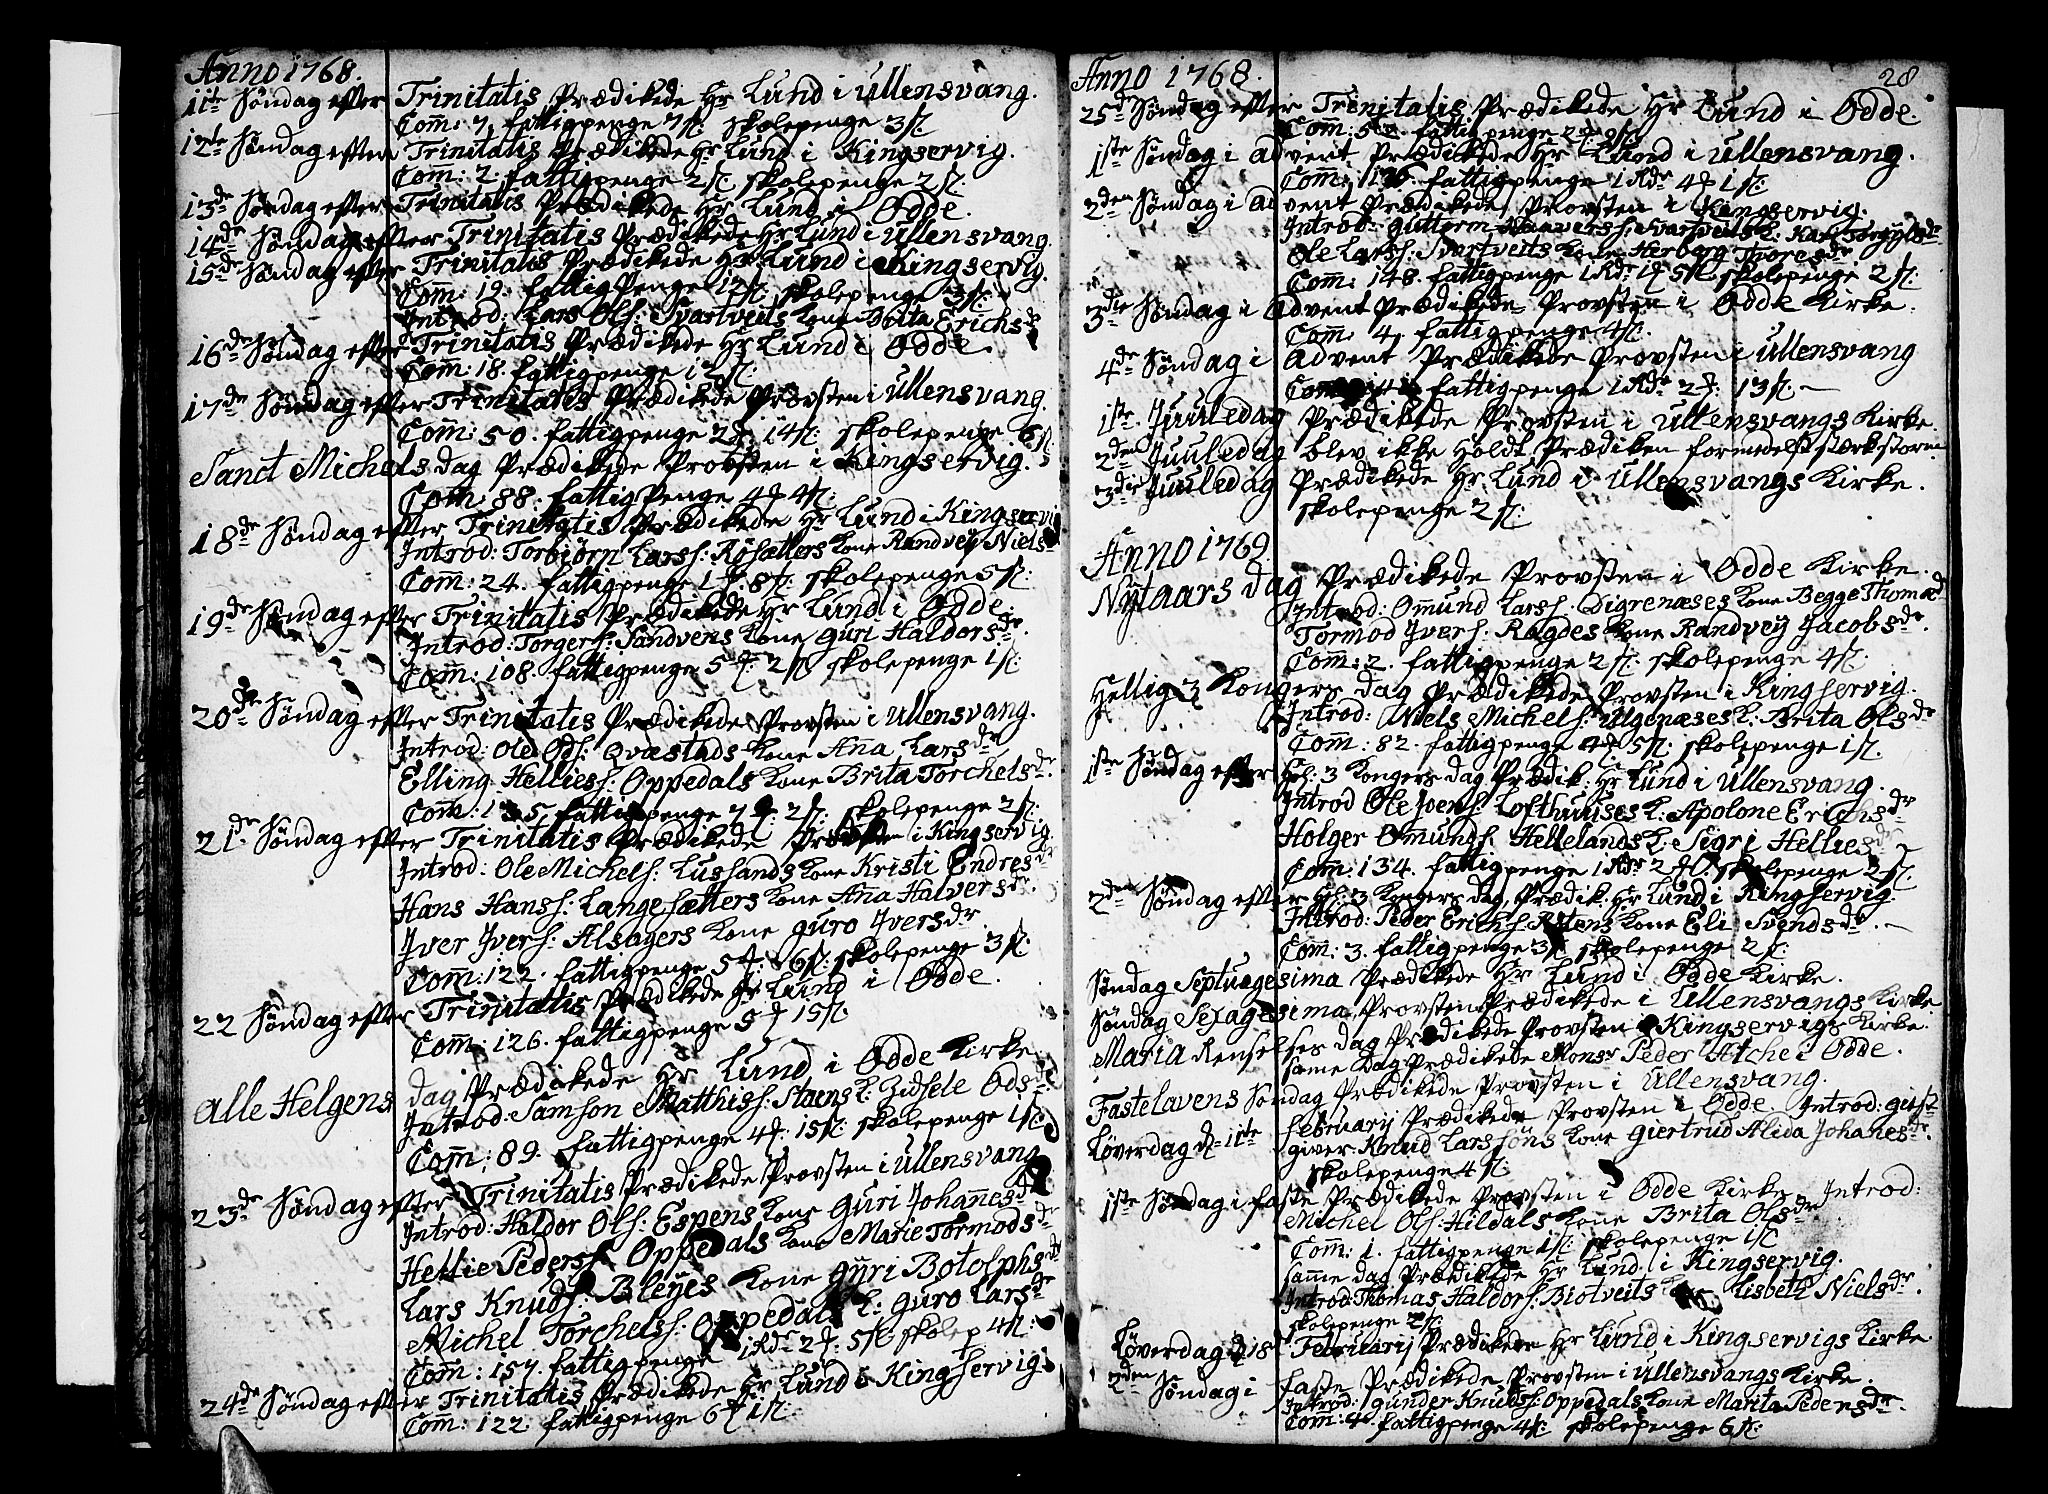 Anno 1768.
11te Søndag efter Trinitatis Prædikede Hr Lund i Ullensvang.
Com̄: 7. fattigpenge 7ſ: skolepenge 3ſ:
12te Søndag efter Trinitatis Prædikede Hr Lund i Kingservig.
Com: 2. fattigpenge 2ſ: skolepenge 2ſ:
13de Søndag efter Trinitatis Prædikede Hr Lund i Odde.
14de Søndag efter Trinitatis Prædikede Hr Lund i Ullensvang.
15de Søndag efter Trinitatis Prædikede Hr Lund i Kingservig.
Com̄: 19. fattigpenge 12ſ: skolepenge 3ſ:
Introd: Lars Olſ: Svartveits kone Brita Erichsdr
16de Søndag efter Trinitatis Prædikede Hr Lund i Odde.
Com̄: 18. fattigpenge 12ſ:
17de Søndag efter Trinitatis Prædikede Provsten i Ullensvang.
Com̄: 50. fattigpenge 2 14ſ: skolepenge 6ſ:
Sanct Michels dag Prædikede Provsten i Kingservig.
Com̄: 88. fattigpenge 4 4ſ:
18de Søndag efter Trinitatis Prædikede Hr Lund i Kingservig
Introd: Torbjørn Larsſ: Røsætters kone Randvey Nielsdr
Com̄: 24. fattigpenge 1 8ſ: skolepenge 5ſ:
19de Søndag efter Trinitatis Prædikede Hr Lund i Odde.
Introd: Torgerſ: Sandvens kone Guri Haldorsdr.
Com̄: 108. fattigpenge 5 2ſ skolepenge 1ſ:
20de Søndag efter Trinitatis Prædikede Provsten i Ullensvang.
Introd: Ole Odſ: Qvæstads kone Anna Larsdr
Elling Helliesſ: Oppedals kone Brita Torchelsdr.
Com̄: 135, fattigpenge 7 2ſ: skolepenge 2ſ:
21de Søndag efter Trinitatis Prædikede Provsten i Kingservig
Introd: Ole Michelſ: Lussands kone Kristi Endresdr
Hans Hansſ: Langesætters kone Ana Halversdr.
Jver Jverſ: Alsagers kone Guro Jversdr
Com̄: 122. fattigpenge 5 6ſ: skolepenge 3ſ:
22 Søndag efter Trinitatis Prædikede Hr Lund i Odde.
Com̄: 126. fattigpenge 5 15ſ:
Alle Helgens dag Prædikede Hr Lund i Odde Kirke
Introd: Samson Matthisſ: Staens k: Zidsele Odsdr.
Com̄: 89. fattigpenge 4 15ſ: skolepenge 1ſ:
23de Søndag efter Trinitatis Prædikede Provsten i Ullensvang
Introd: Haldor Olſ: Espens kone Guri Johannesdr
Hellie Pedersſ: Oppedals kone Marie Tormodsdr
Lars Knudſ: Bleyes kone Gyri Botolphsdr
Michel Torchelsſ: Oppedals k: Guro Larsdr
Com̄: 157. fattigpenge 1Rdr 2 5ſ: skolep 4ſ:
24de Søndag efter Trinitatis Prædikede Hr Lund i Kingservig
Com̄: 122. fattigpenge 6 1ſ:
Anno 1768.
28
25de Søndag efter Trinitatis Prædikede Hr Lund i Odde.
Com̄: 52. fattigpenge 2 9ſ:
1ste Søndag i Advent Prædikede Hr Lund i Ullensvang.
Com̄: 136. fattigpenge 1Rdr 4 1ſ:
2den Søndag i Advent Prædikede Provsten i Kingservig.
Introd: Gutterm Haaversſ: Svartveits k: Kari Torgylsdr
Ole Larsſ: Svartveits kone Herborg Thoresdr
Com̄: 148. fattigpenge 1Rdr 1 5ſ: skolepenge 2ſ:
3die Søndag i Advent Prædikede Provsten i Odde Kirke.
Com̄: 4. fattigpenge 4ſ:
4de Søndag i Advent Prædikede Provsten i Ullensvang
Com̄: fattigpenge 1Rdr 2 13ſ.
1ste Juuledag Prædikede Provsten i Ullensvangs Kirke.
2den Juuledag blev ikke Holdt Prædiken formedelst stærk storm
3die Juuledag Prædikede Hr Lund i Ullensvangs Kirke.
skolepenge 2ſ:
Anno 1769
Nytaars dag Prædikede Provsten i Odde Kirke.
Introd: Omund Larsſ: Digrenæses kone Begge Thomædr
Tormod Jverſ: Ragdes kone Randvey Jacobsdr.
Com̄: 2. fattigpenge 2ſ: skolepenge 4ſ:
Hellig 3 Kongers dag Prædikede Provsten i Kingservig.
Introd: Niels Michelſ: Ulgenæses k: Brita Olsdr
Com̄: 82. fattigpenge 4 5ſ: skolepenge 1ſ.
1ste Søndag efter Hel: 3 Kongers dag Prædik: Hr Lund i Ullensvang.
Introd Ole Joenſ: Lofthuuses k: Apolone Erichsdr
Holger Omundſ: Hellelands k: Sigri Helliesdr
Com̄: 134. fattigpenge 1Rdr 2 skolepenge 2ſ:
2den Søndag efter Hel: 3 Kongers dag, Prædik: Hr Lund i Kingservig.
Introd: Peder Erichſ: kone Eli Svendsdr.
Com̄: 3. fattigpenge 3ſ skolepenge 2ſ:
Søndag Septuagesima Prædikede Hr Lund i Odde Kirke.
Søndag Sexagesima Provsten Prædikede i Ullensvangs Kirke
Maria Renselses dag Prædikede Provsten i Kingservigs Kirke.
same dag Prædikede Monsr Peder Atche i Odde.
Fastelavens Søndag Prædikede Provsten i Ullensvang.
Løverdag d: 11te Februarij Prædikede Provsten i Odde Introd: giest
giver Knud Larssøns kone Giertrud Alida Johanesdr.
skolepenge 4ſ:
1ste Søndag i Faste Prædikede Provsten i Odde Kirke Introd:
Michel Olſ: Hildals kone Brita Olsdr
Com̄: 1. fattigpenge 1ſ: skolepenge 1ſ
samme dag Prædikede Hr Lund i Kingservig.
Introd: Thomas Haldorſ: Biotveits Lisbeth Nielsdr.
skolepenge 2ſ:
Løverdag d 18 Februarij Prædikede Hr Lund i Kingservigs Kirke
2den Søndag i Faste Prædikede Provsten i Ullensvangs Kirke.
Introd: Gunder Knudsſ: Oppedals kone Marita Pedersdr.
Com: 4 fattigpenge 4ſ: skolepenge 6ſ: